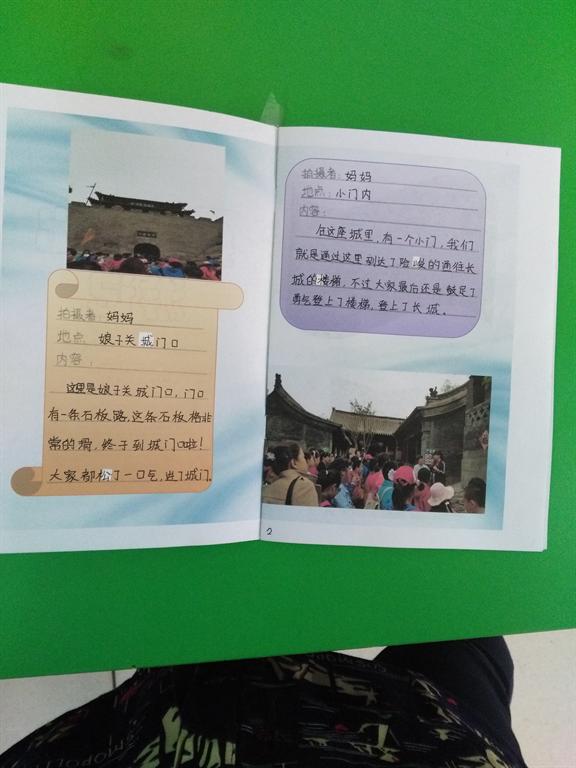 拍摄者:妈妈
地点:娘子关城门口
内容:
这里是娘子关城门口,门口
有一条石板路,这条石板格非
常的滑,终于到城门口啦!
大家都松了一口气,进了城门。
拍摄者:妈妈
地点:小门内
内容:
在这座城里,有一个小门,我们
就是通过这里到达了险峻的通往长
城的楼梯,不过大家最后还是鼓足了
勇气登上了楼梯,登上了长城。
2